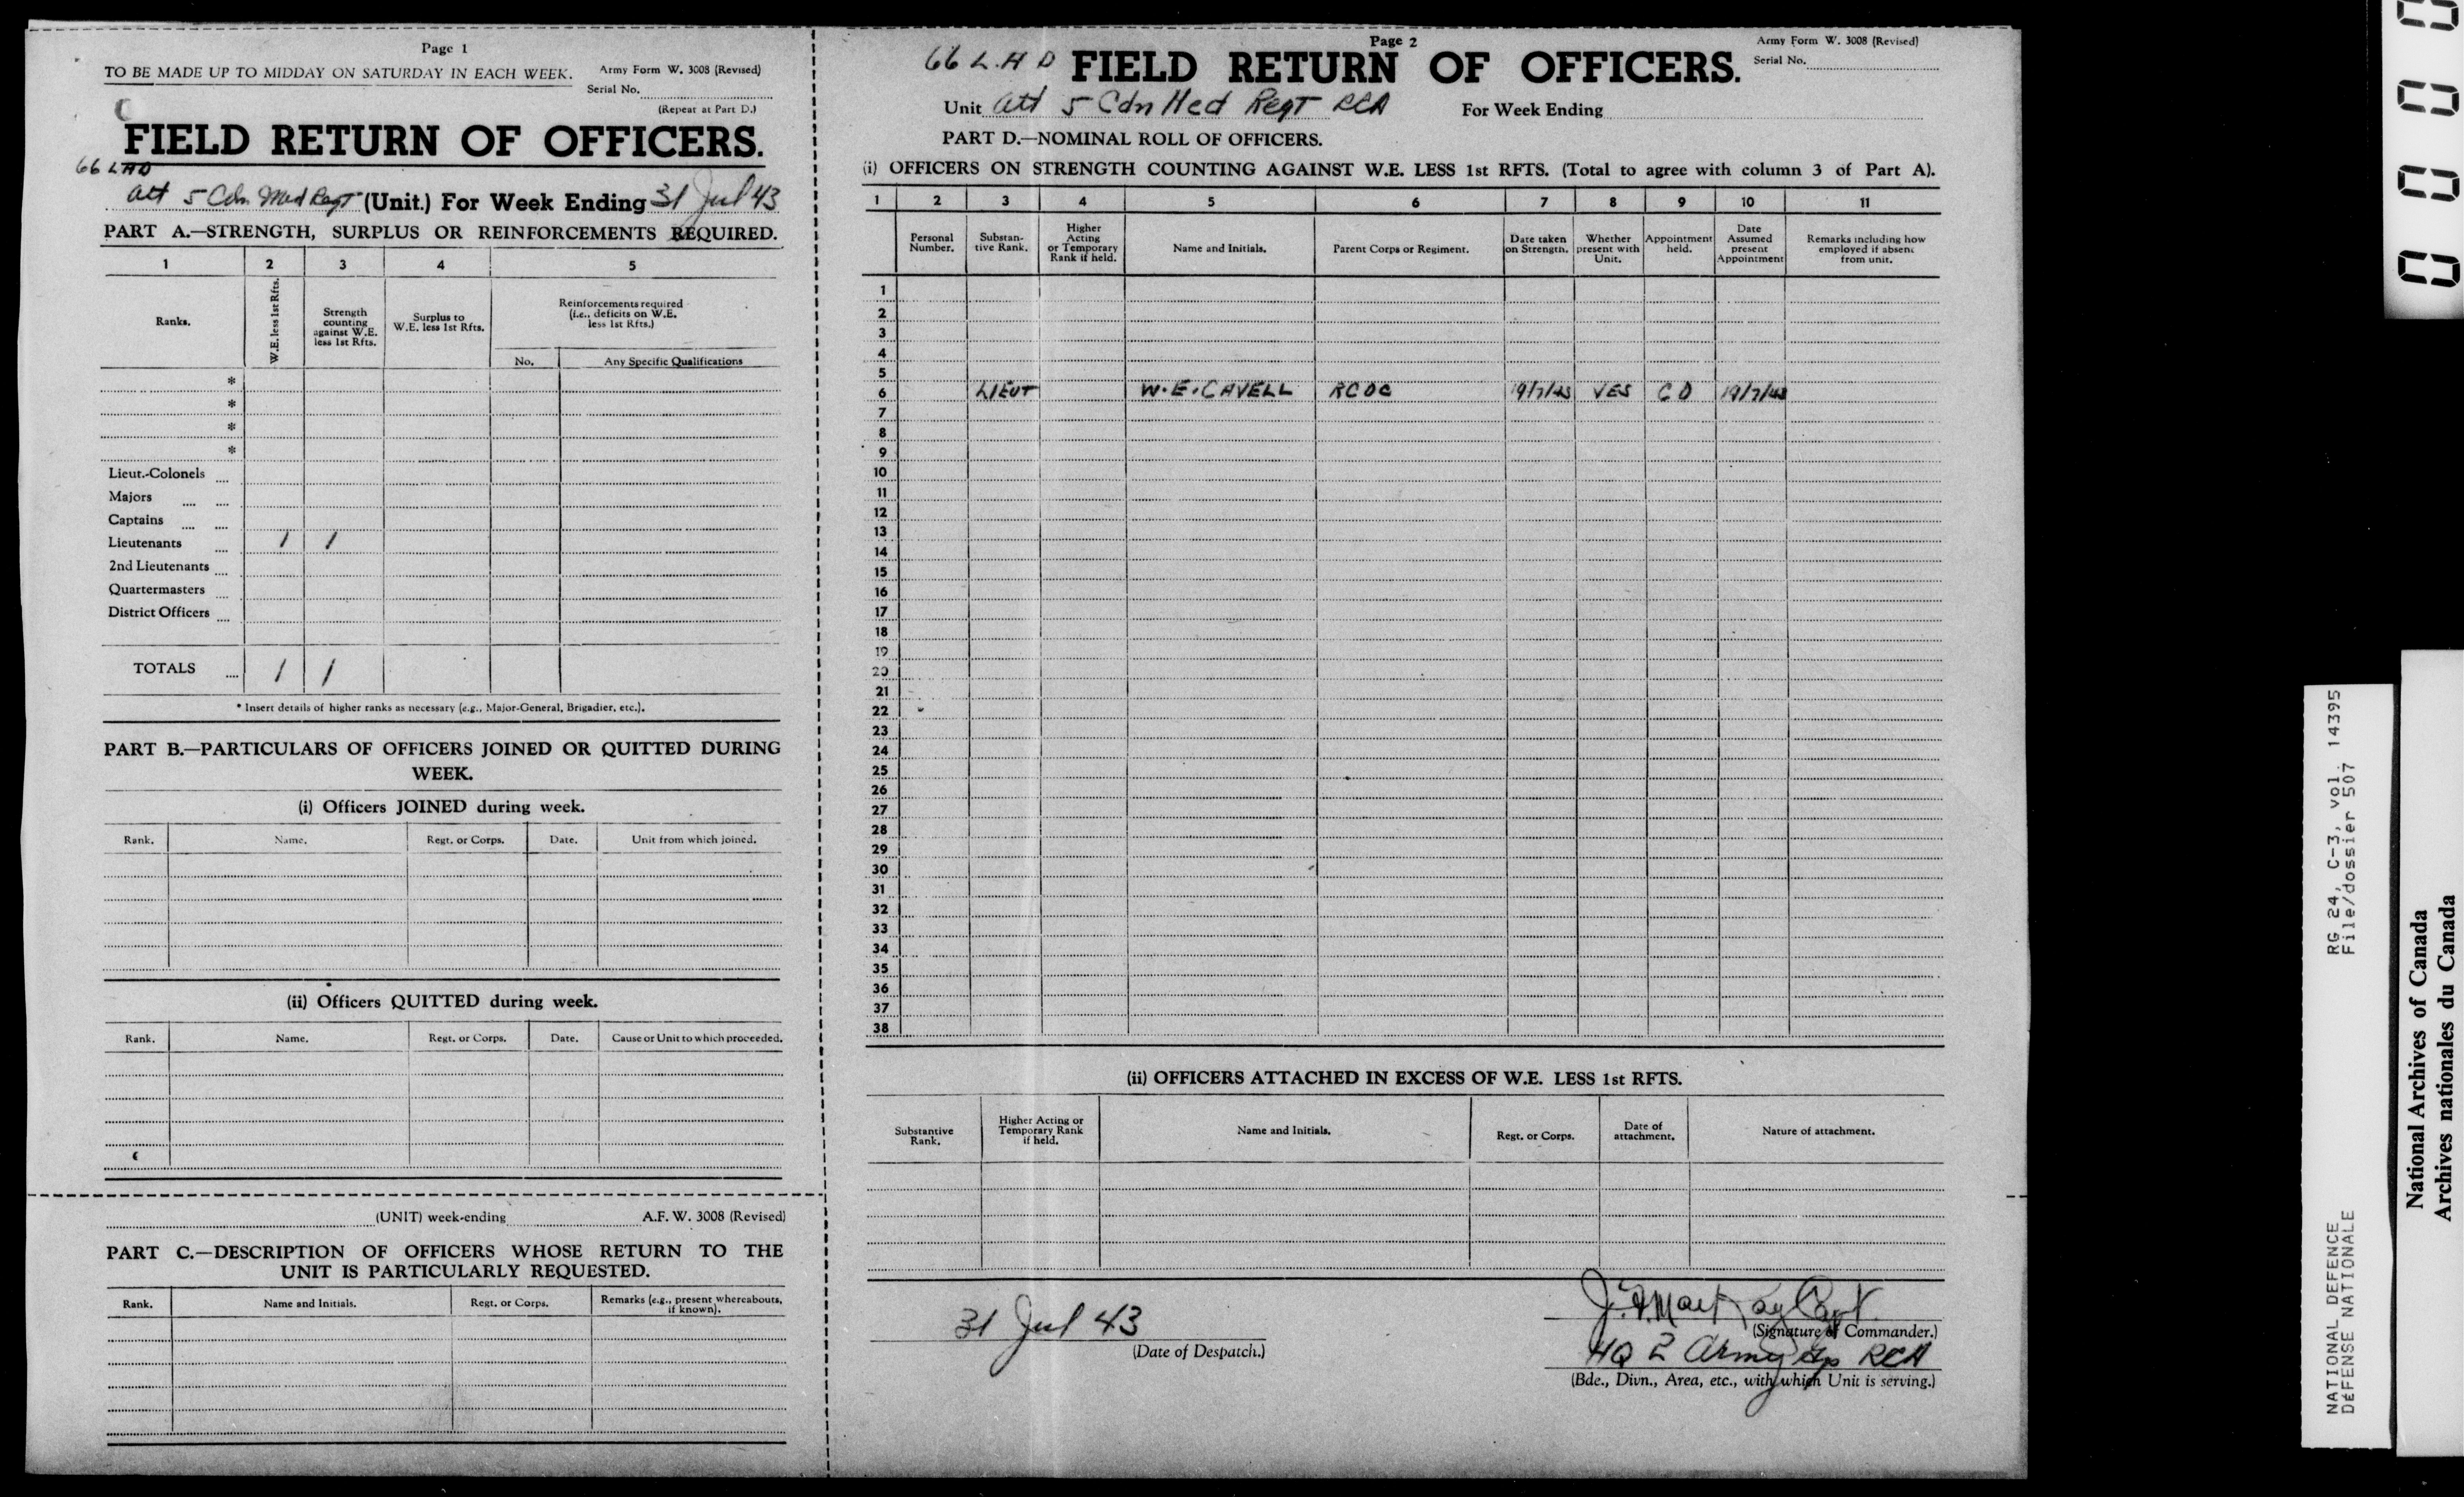 Page 1
TO BE MADE UP TO MIDDAY ON SATURDAY IN EACH WEEK.
Army Form W. 3008 (Revised)
Serial No.
(Repeat at Part D.)
FIELD RETURN OF OFFICERS.
66 LAD
att 5 Cdn Med Regt (Unit.) For Week Ending 31 Jul 43
PART A.—STRENGTH, SURPLUS OR REINFORCEMENTS REQUIRED.
1 2 3 4 5
Ranks.
W.E. less 1st Rfts.
Strength
counting
against W.E.
less 1st Rfts.
Surplus to
W.E. less 1st Rfts.
Reinforcements required
(i.e., deficits on W.E.
less 1st Rfts.)
No. Any Specific Qualifications
*
*
*
*
Lieut.-Colonels ....
Majors .... ....
Captains .... ....
Lieutenants .... 1 1
2nd Lieutenants ....
Quartermasters ....
District Officers ....
TOTALS .... 1 1
* Insert details of higher ranks as necessary (e.g., Major-General, Brigadier, etc.).
PART B.—PARTICULARS OF OFFICERS JOINED OR QUITTED DURING
WEEK.
(i) Officers JOINED during week.
Rank. Name. Regt. or Corps. Date. Unit from which joined.
(ii) Officers QUITTED during week.
Rank. Name. Regt. or Corps. Date. Cause or Unit to which proceeded.
(UNIT) week-ending A.F. W. 3008 (Revised)
PART C.—DESCRIPTION OF OFFICERS WHOSE RETURN TO THE
UNIT IS PARTICULARLY REQUESTED.
Rank. Name and Initials. Regt. or Corps. Remarks (e.g., present whereabouts,
if known).
Page 2
Army Form W. 3008 (Revised)
Serial No.
66 L.A D FIELD RETURN OF OFFICERS.
Unit att 5 Cdn Med Regt RCA For Week Ending
PART D.—NOMINAL ROLL OF OFFICERS.
(i) OFFICERS ON STRENGTH COUNTING AGAINST W.E. LESS 1st RFTS. (Total to agree with column 3 of Part A).
1 2 3 4 5 6 7 8 9 10 11
Personal
Number.
Substan-
tive Rank.
Higher
Acting
or Temporary
Rank if held.
Name and Initials.
Parent Corps or Regiment.
Date taken
on Strength.
Whether
present with
Unit.
Appointment
held.
Date
Assumed
present
Appointment
Remarks including how
employed if absent
from unit.
1
2
3
4
5
6 LIEUT W.E.CAVELL RCOC 19/7/43 YES C O 19/7/43
7
8
9
10
11
12
13
14
15
16
17
18
19
20
21
22
23
24
25
26
27
28
29
30
31
32
33
34
35
36
37
38
(ii) OFFICERS ATTACHED IN EXCESS OF W.E. LESS 1st RFTS.
Substantive
Rank.
Higher Acting or
Temporary Rank
if held.
Name and Initials.
Regt. or Corps.
Date of
attachment.
Nature of attachment.
31 Jul 43
(Date of Despatch.)
Capt
(Signature of Commander.)
HQ 2 Army Gp RCA
(Bde., Divn., Area, etc., with which Unit is serving.)
0 0 0 0
RG 24, C-3, vol. 14395
File/dossier 507
NATIONAL DEFENCE
DÉFENSE NATIONALE
National Archives of Canada
Archives nationales du Canada